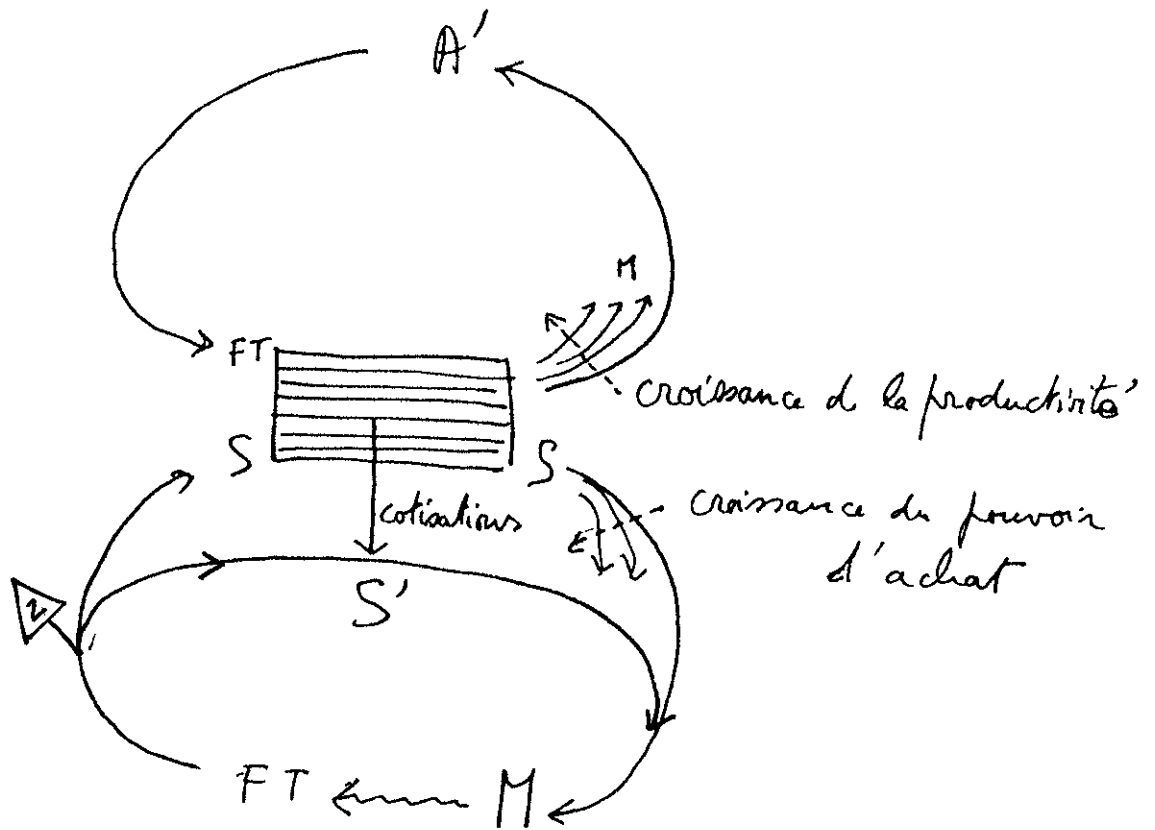 A'
M
FT
croissance d la productivité
S
S
cotisations
croissance du pouvoir
d'achat
S'
2
FT
M